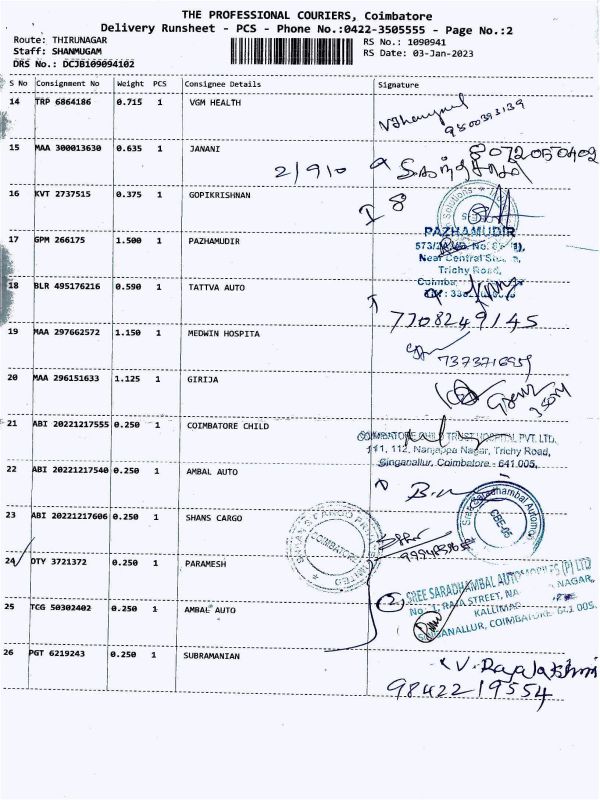 THE PROFESSIONAL COURIERS, Coimbatore
Delivery Runsheet - PCS - Phone No.:0422-3505555 - Page No.:2
Route: THIRUNAGAR RS No.: 1090941
Staff: SHANMUGAM RS Date: 03-Jan-2023
DRS No.: DCJB109094102
S No Consignment No Weight PCS Consignee Details Signature
14 TRP 6864186 0.715 1 VGM HEALTH
9500393139
15 MAA 300013630 0.635 1 JANANI
8072050402
2/910
16 KVT 2737515 0.375 1 GOPIKRISHNAN
I 8
17 GPM 266175 1.500 1 PAZHAMUDIR
PAZHAMUDIR
Near Central
Trichy Road,
18 BLR 495176216 0.590 1 TATTVA AUTO
7708249145
19 MAA 297662572 1.150 1 MEDWIN HOSPITA
7373716959
20 MAA 296151633 1.125 1 GIRIJA
21 ABI 20221217555 0.250 1 COIMBATORE CHILD
COIMBATORE CHILD TRUST HOSPITAL PVT. LTD.
111, 112, Nanjappa Nagar, Trichy Road,
Singanallur, Coimbatore - 641 005.
22 ABI 20221217540 0.250 1 AMBAL AUTO
Sree Saradhambal Automo
CBE-05
23 ABI 20221217606 0.250 1 SHANS CARGO
COIMBATORE
24 OTY 3721372 0.250 1 PARAMESH
SREE SARADHAMBAL AUTOMOBILES (P) LTD
No. 1, RAJA STREET, NAGAR,
SINGANALLUR, COIMBATORE - 641 005.
25 TCG 50302402 0.250 1 AMBAL AUTO
26 PGT 6219243 0.250 1 SUBRAMANIAN
V. Rajalakshmi
9842219554